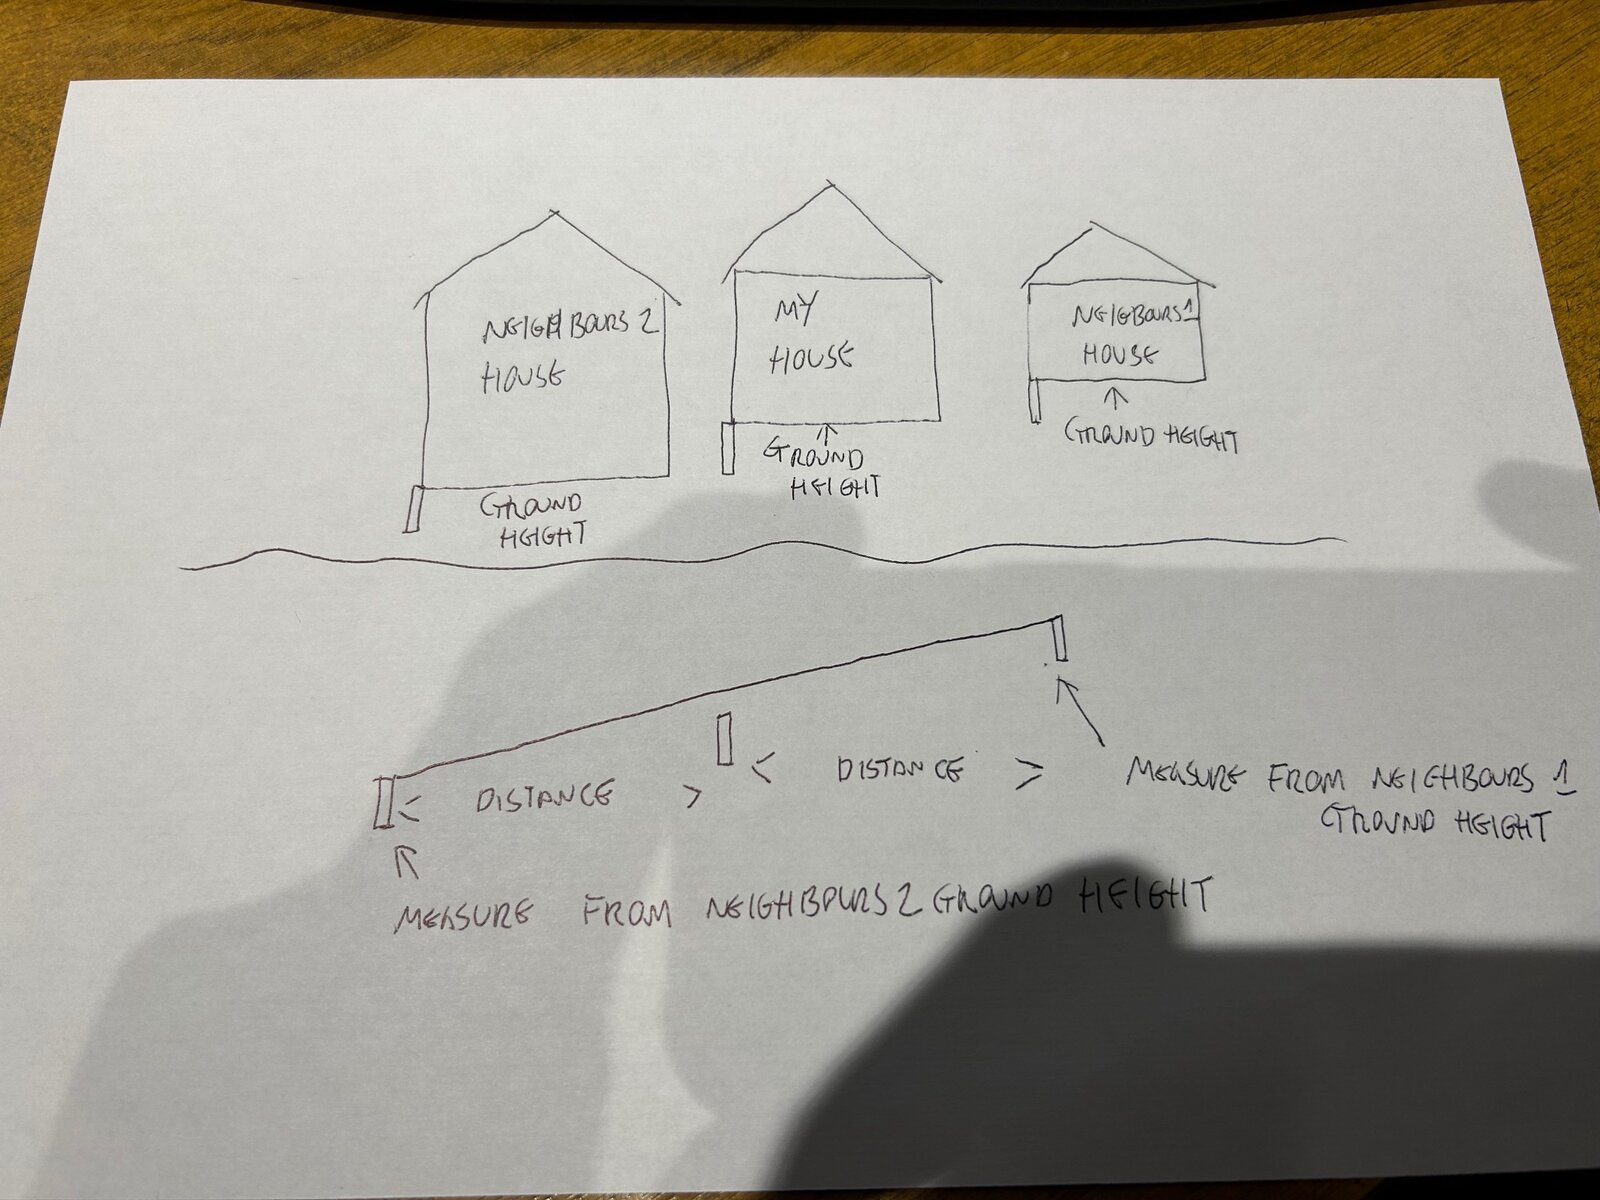 NEIGHBOURS 2
HOUSE
GROUND
HEIGHT
MY
HOUSE
GROUND
HEIGHT
NEIGBOURS 1
HOUSE
GROUND HEIGHT
DISTANCE
DISTANCE
MEASURE FROM NEIGHBOURS 1
GROUND HEIGHT
MEASURE FROM NEIGHBOURS 2 GROUND HEIGHT